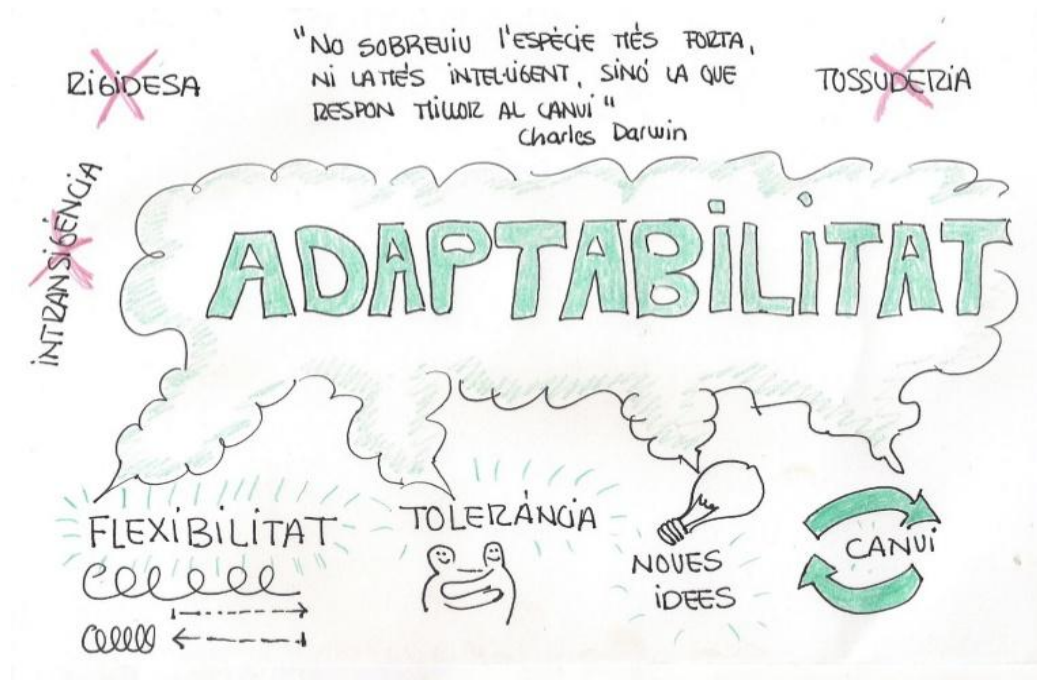 "NO SOBREVIU l'ESPÈCIE MÉS FORTA,
NI LA MÉS INTEL·LIGENT, SINÓ LA QUE
RESPON MILLOR AL CANVI"
Charles Darwin
RIGIDESA
TOSSUDERIA
INTRANSIGÈNCIA
ADAPTABILITAT
FLEXIBILITAT
TOLERÀNCIA
NOVES
IDEES
CANVI